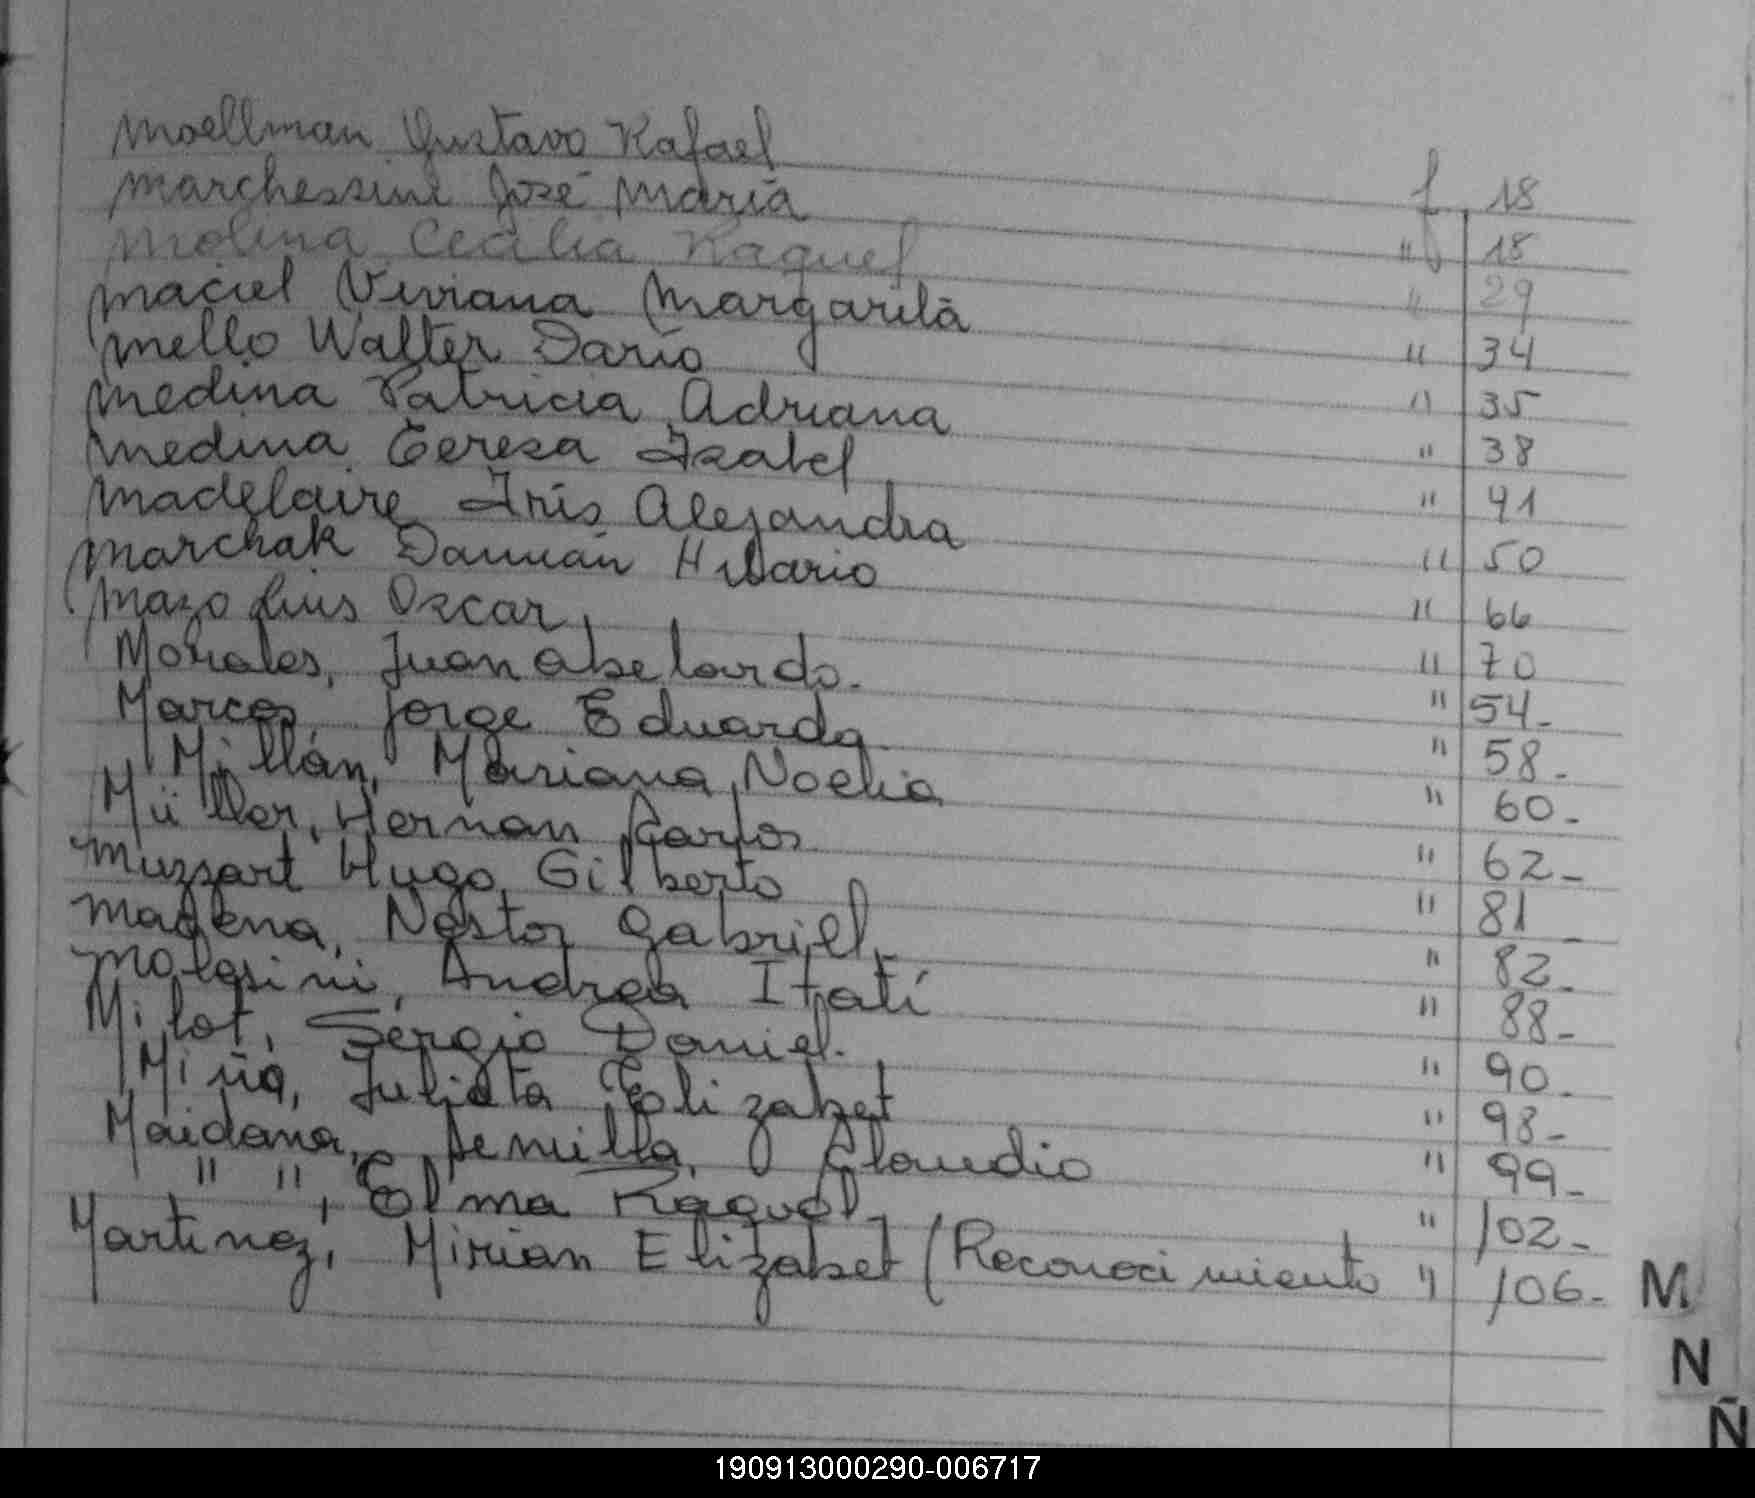 Moellman Gustavo Rafael f 18
Marchessini José María " 18
Molina Cecilia Raquel " 29
Maciel Viviana Margarita " 34
Mello Walter Darío " 35
Medina Patricia Adriana " 38
Medina Teresa Isabel " 41
Madelaire Iris Alejandra " 50
Marchak Damián Hilario " 66
Mazo Luis Oscar " 70
Morales, Juan Abelardo. " 54-
Marcos, Jorge Eduardo " 58-
Millán, Mariana Noelia " 60-
Müller, Hernan Carlos " 62-
Muzzart Hugo Gilberto " 81
Magena, Nestor Gabriel " 82-
Malgsini, Andrea Itatí " 88-
Milot, Sergio Daniel. " 90-
Miño, Julieta Elizabet " 98-
Maidana, Claudio " 99-
" ", Elma Raquel " 102-
Martinez, Mirian Elizabet (Reconocimiento " 106-
M
N
Ñ
190913000290-006717